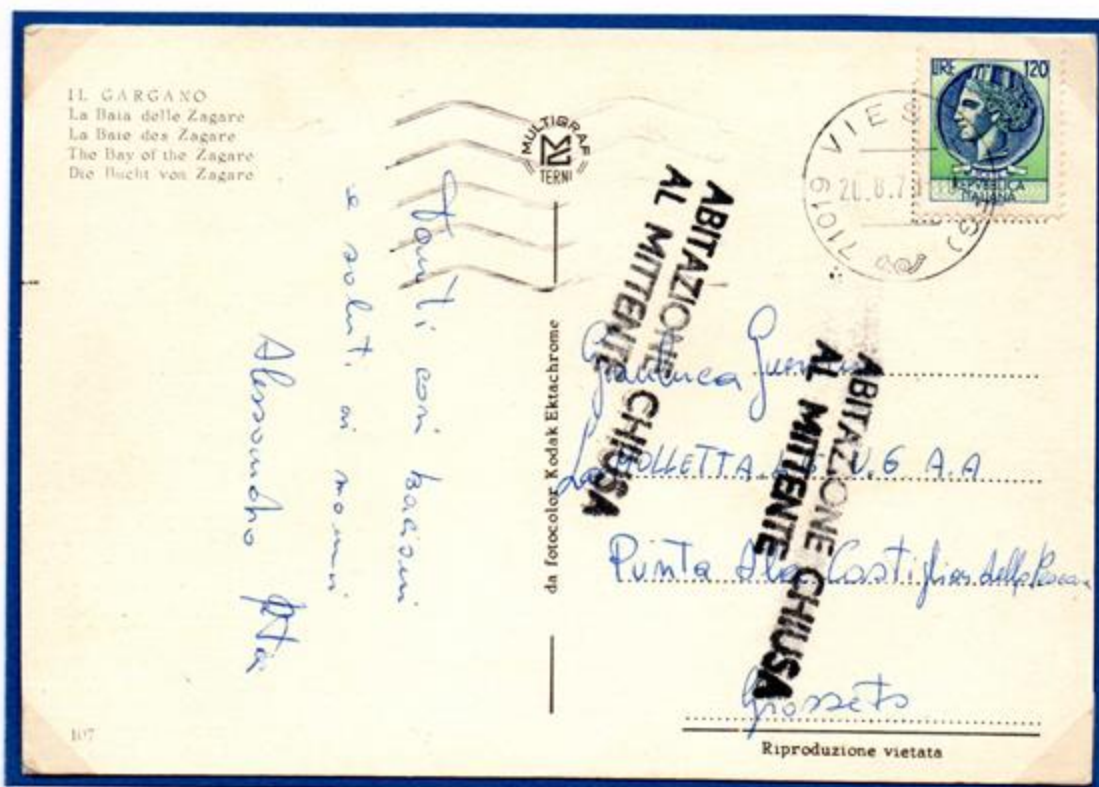 IL GARGANO
La Baia delle Zagare
La Baie des Zagare
The Bay of the Zagare
Die Bucht von Zagare
MULTIGRAF
TERNI
LIRE 120
REPUBBLICA
ITALIANA
71019 VIES (FG)
20.8.7
Tanti cari bacioni
e saluti ai nonni
Alessandro
da fotocolor Kodak Ektachrome
ABITAZIONE CHIUSA
AL MITTENTE
ABITAZIONE CHIUSA
AL MITTENTE
Gianluca
La
Punta Ala Castiglion della Pescaia
Grosseto
107
Riproduzione vietata